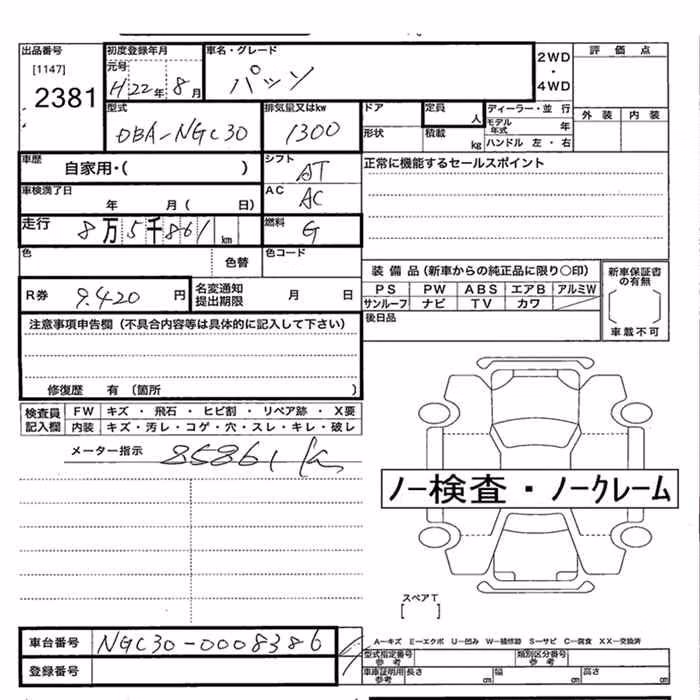 出品番号
[1147]
2381
初度登録年月
元号
H22年8月
車名・グレード
パッソ
2WD
・
4WD
評価点
外装 内装
型式
DBA-NGC30
排気量又はkw
1300
ドア
形状
定員
人
積載
kg
ディーラー・並行
モデル年式 年
ハンドル 左・右
車歴
自家用・( )
シフト
AT
正常に機能するセールスポイント
車検満了日
年 月( 日)
AC
AC
走行
8万5千861km
燃料
G
色
色替
色コード
R券 9.420円
名変通知
提出期限
月 日
装備品(新車からの純正品に限り○印)
PS PW ABS エアB アルミW
サンルーフ ナビ TV カワ
後日品
新車保証書
の有無
車載不可
注意事項申告欄(不具合内容等は具体的に記入して下さい)
修復歴 有(箇所 )
検査員
記入欄
FW キズ・飛石・ヒビ割・リペア跡・X要
内装 キズ・汚レ・コゲ・穴・スレ・キレ・破レ
メーター指示 85861 km
ノー検査・ノークレーム
スペアT
[ ]
車台番号 NGC30-0008386
登録番号
A-キズ E-エクボ U-凹み W-補修跡 S-サビ C-腐食 XX-交換済
型式指定番号
参考
類別区分番号
参考
車庫証明用
参考
長さ cm 幅 cm 高さ cm